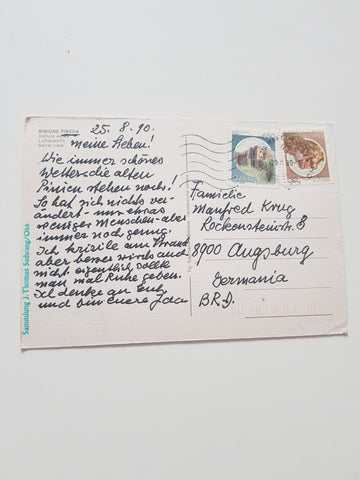 BIBIONE PINEDA
Luftansicht
25. 8. 90.
meine Lieben!
Wie immer schönes
Wetter die alten
Pinien stehen noch!
So hat sich nichts ver-
ändert - nur etwas
weniger Menschen - aber
immer noch genug.
Ich kritzle am Strand
aber besser wirds auch
nicht eigentlich sollte
man mal Ruhe geben.
Ich denke an Euch
und bin Euere Ida
Familie
Manfred Krug
Rockensteinstr. 8
8900 Augsburg
Germania
B.R.D.
Sammlung J. Thomas Sabrang/Obo